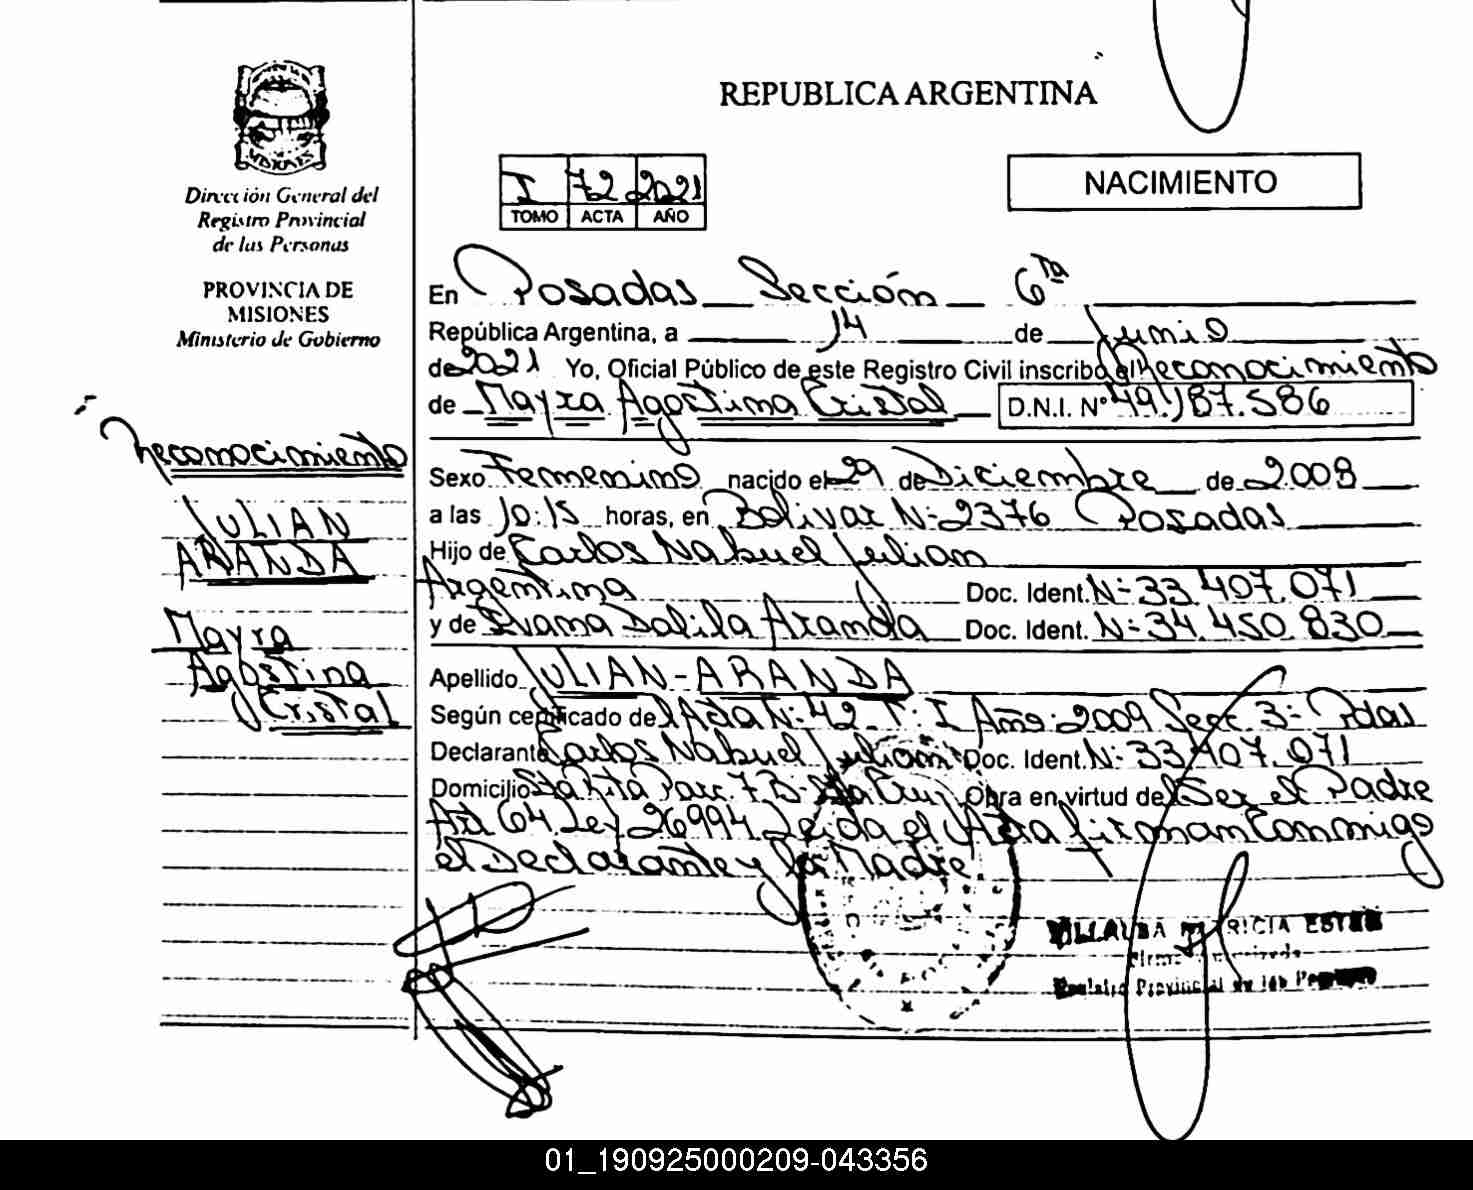 REPUBLICA ARGENTINA
MISIONES
Dirección General del
Registro Provincial
de las Personas
PROVINCIA DE
MISIONES
Ministerio de Gobierno
I 72 2021
TOMO ACTA AÑO
NACIMIENTO
En Posadas Sección 6ta
República Argentina, a 14 de Junio
de 2021 Yo, Oficial Público de este Registro Civil inscribo el Reconocimiento
de Mayra Agostina Cristal D.N.I. Nº 49.187.586
Reconocimiento
JULIAN
ARANDA
Mayra
Agostina
Cristal
Sexo Femenino nacido el 29 de Diciembre de 2008
a las 10:15 horas, en Bolivar Nº 2376 Posadas
Hijo de Carlos Nahuel Julian
Argentina Doc. Ident. Nº 33.407.071
y de Ivana Dalila Aranda Doc. Ident. Nº 34.450.830
Apellido JULIAN-ARANDA
Según certificado del Acta Nº 42 Tº I Año: 2009 Secc. 3ª Pdas
Declarante Carlos Nahuel Julian Doc. Ident. Nº 33.407.071
Domicilio Sta Rita Parc. 7 B- Sta Cruz Obra en virtud de Ser el Padre
Art 64 Ley 26994 Leida el Acta firman Conmigo
el Declarante y la Madre
VILLALBA PATRICIA ESTER
Registro Provincial de las Personas
01_190925000209-043356